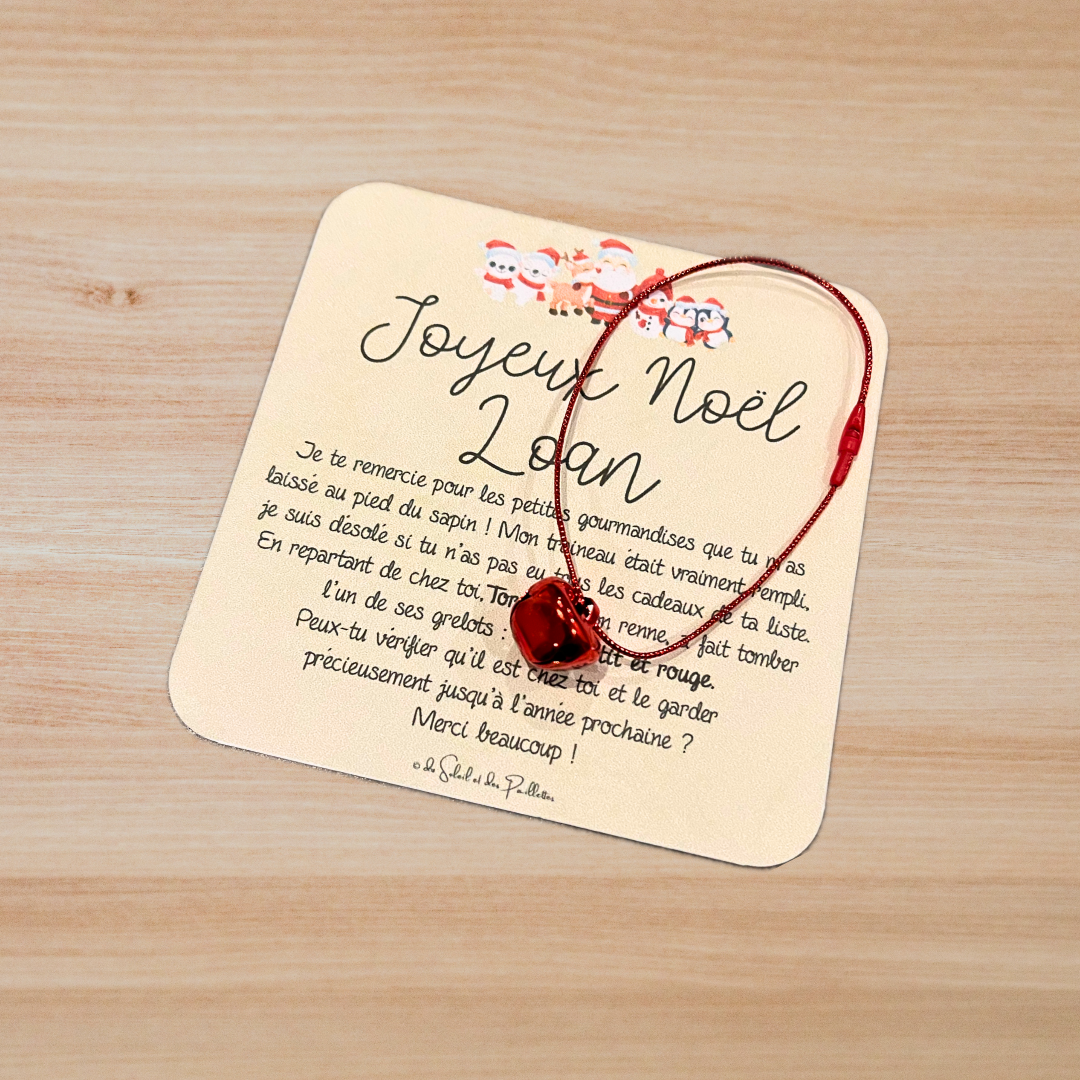 Joyeux Noël
Loan
Je te remercie pour les petites gourmandises que tu m'as
laissé au pied du sapin ! Mon traineau était vraiment rempli,
je suis désolé si tu n'as pas eu tous les cadeaux de ta liste.
En repartant de chez toi, renne, fait tomber
l'un de ses grelots : et rouge.
Peux-tu vérifier qu'il est chez toi et le garder
précieusement jusqu'à l'année prochaine ?
Merci beaucoup !
© de Soleil et des Paillettes